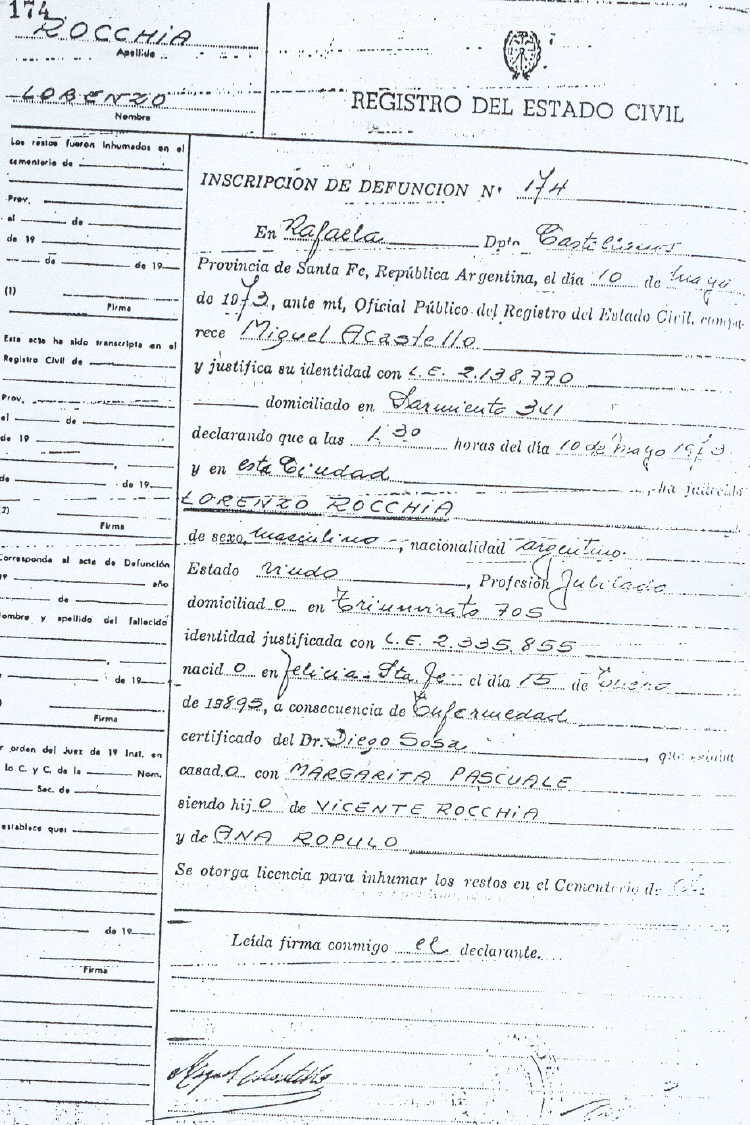 174
ROCCHIA
Apellido
LORENZO
Nombre
REGISTRO DEL ESTADO CIVIL
Los restos fueron inhumados en el
cementerio de
Prov.
el de
de 19
de de 19
(1)
Firma
Esta acta ha sido transcripta en el
Registro Civil de
Prov.
el de
de 19
de de 19
(2)
Firma
Corresponda al acta de Defunción
año
de
nombre y apellido del fallecido
de 19
Firma
r orden del Juez de 1ª Inst. en
lo C. y C. de la Nom.
Sec. de
establece que:
de 19
Firma
INSCRIPCIÓN DE DEFUNCION Nº 174
En Rafaela Dpto. Castellanos
Provincia de Santa Fe, República Argentina, el día 10 de mayo
de 1973, ante mí, Oficial Público del Registro del Estado Civil, compa-
rece Miguel Acastello
y justifica su identidad con L.E. 2.138.770
domiciliado en Sarmiento 341
declarando que a las 1,30 horas del día 10 de mayo 1973
y en esta Ciudad, ha fallecido
LORENZO ROCCHIA
de sexo masculino, nacionalidad argentino.
Estado viudo, Profesión Jubilado
domiciliado en Triunvirato 705
identidad justificada con L.E. 2.335.855
nacido en Felicia - Sta. Fe el día 15 de Enero
de 19895, a consecuencia de Enfermedad
certificado del Dr. Diego Sosa, que
casado con MARGARITA PASCUALE
siendo hijo de VICENTE ROCCHIA
y de ANA ROPULO
Se otorga licencia para inhumar los restos en el Cementerio de
Leída firma conmigo el declarante.